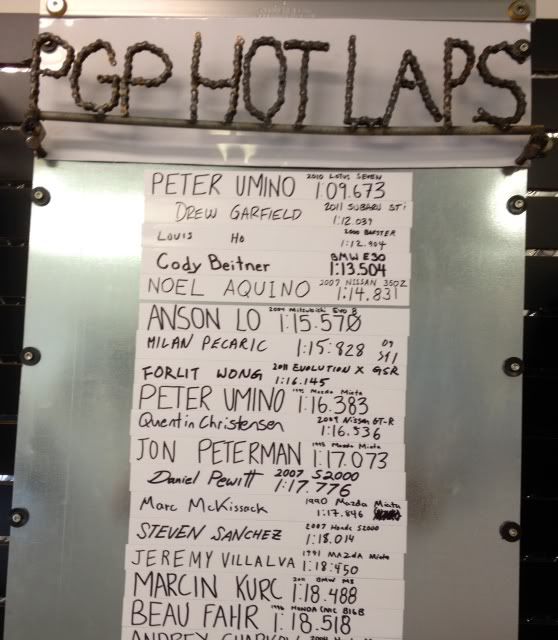 PGP HOT LAPS
PETER UMINO 2010 LOTUS SEVEN 1:09.673
DREW GARFIELD 2011 SUBARU STi 1:12.039
LOUIS Ho 2000 BOXSTER 1:12.904
Cody Beitner BMW E30 1:13.504
NOEL AQUINO 2007 NISSAN 350Z 1:14.831
ANSON LO 2004 Mitsubishi Evo 8 1:15.570
MILAN PECARIC 1:15:828 09 STI
FORLIT WONG 2011 EVOLUTION X GSR 1:16.145
PETER UMINO 1995 Mazda Miata 1:16.383
Quentin Christensen 2009 Nissan GT-R 1:16.536
JON PETERMAN Mazda Miata 1:17.073
Daniel Pewitt 2007 S2000 1:17.776
Marc McKissack 1990 Mazda Miata 1:17.846
STEVEN SANCHEZ 2007 Honda S2000 1:18.014
JEREMY VILLALVA 1991 MAZDA Miata 1:18:450
MARCIN KURC 2011 BMW M3 1:18.488
BEAU FAHR 1996 HONDA CIVIC B16B 1:18.518